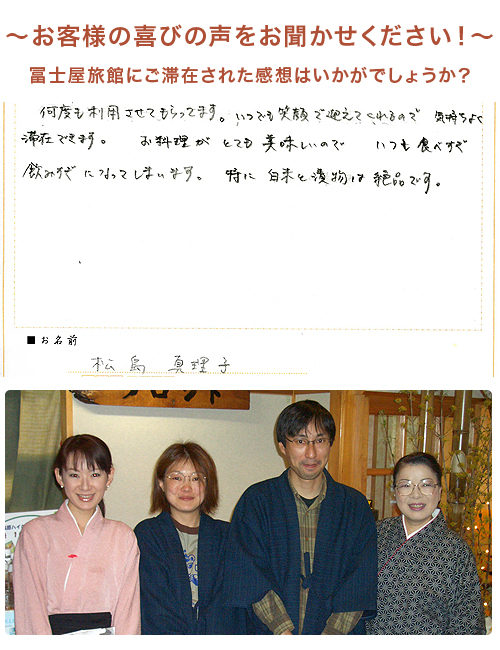 ～お客様の喜びの声をお聞かせください！～
冨士屋旅館にご滞在された感想はいかがでしょうか？
何度も利用させてもらってます。いつでも笑顔で迎えてくれるので 気持ちよく
滞在できます。 お料理が とても 美味しいので いつも 食べすぎ
飲みすぎ になってしまいます。 特に 白米と漬物は 絶品です。
■お名前
松島 真理子
フロント